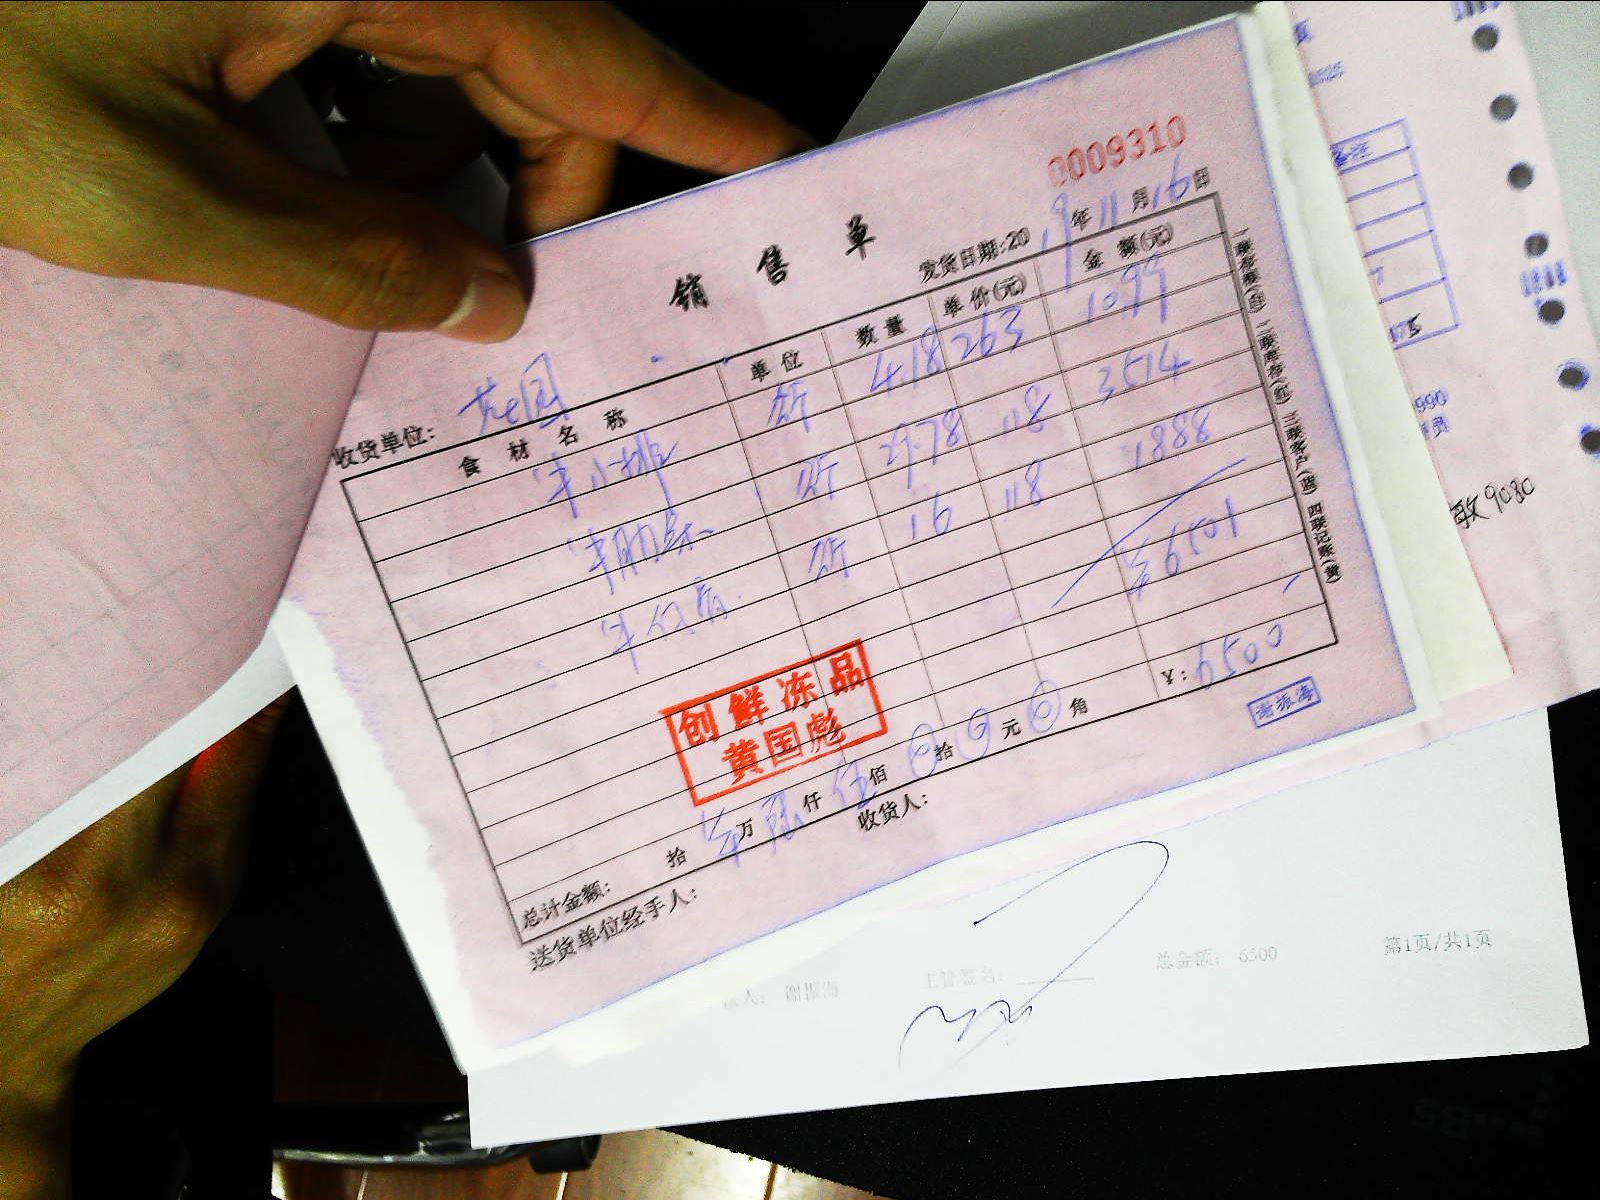 0009310
销售单
发货日期:2019年11月16日
收货单位:
食材名称 单位 数量 单价(元) 金额(元)
牛小排 斤 4.18 263 1099
牛肋条 斤 29.78 118 3514
斤 16 118 1888
6501
创鲜冻品
黄国彪
总计金额: 拾 万 仟 伍佰 拾 元 角 ¥: 6500
送货单位经手人: 收货人:
谢振海
一联存根(白) 二联库存(红) 三联客户(蓝) 四联记账(黄)
备注
敏9080
谢振海 主管签名: 总金额: 6500 第1页/共1页